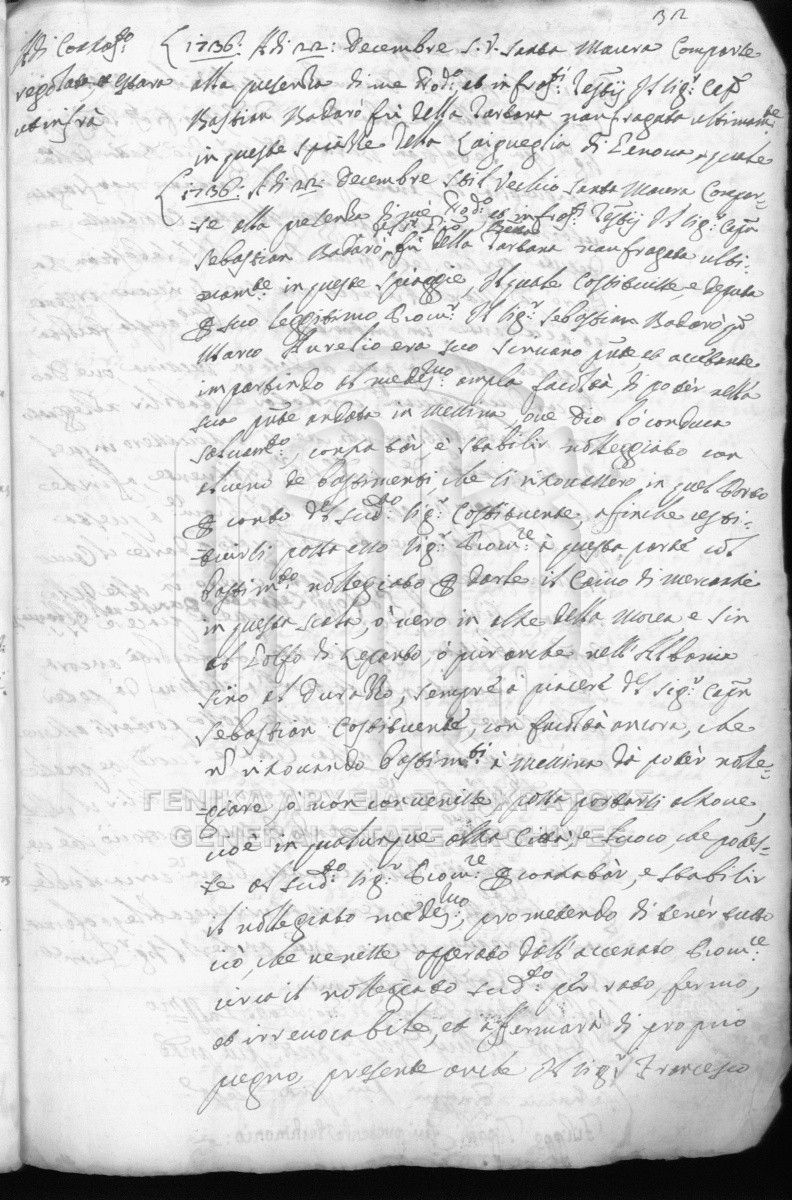 32
Adi Contras.to
regolato, et estara
et infra
1736: Adi 22: Decembre S. V. Santa Maura Comparse
alla presenza di me Nod.o et infras.ti Testij Il sig.r Cap.n
Bastian Badarò fù della Tartana naufragata ultimam.te
in queste spiazze della Laigueglia di Genova, quale
1736: Adi 22: Decembre Stil Vechio Santa Maura Compar-
-se alla presenza di me Nod.o et infras.ti Testij Il sig.r Cap.n
Sebastian Badarò fù della Tartana naufragata ulti-
mam.te in queste spiaggie, Il quale Constituisse, e deputa
P suo legitimo Procur.r Il sig.r Sebastian Badarò q.m
Marco Aurelio era suo scrivano p.nte et accettante
impartindo al medes.mo ampla facoltà, di potèr nella
sua p.nte andata in Messina, que Dio lo conduca
salvam.to, contratàr, e stabilir nolleggiato con
alcuno de bastimenti, che si ritrovassero in quel Porto
P conto del sud.to sig.r Costituente, affinche
possa esso sig.r Procur.re à questa parte col
bastim.to nolleggiato P darle il Carico di mercantie
in questa scala, ò vero in altre della Morea e sin
al Golfo di Lepanto, ò pur anche nell'Albania
sino al Durazzo, sempre à piacere del sig.r Cap.n
Sebastian Costituente, con facoltà ancora, che
n. ritrovando bastim.ti à Messina da potèr nolle-
-giare, ò non convenisse possa portarsi altrove,
cioè in qualunque altra Città, e luoco, che potes-
-se al sud.to sig.r Procur.re P contratàr, e stabilir
il nollegiato med.mo, prometendo di tenèr tutto
ciò, che venisse opperato dall'accenato Procur.re
circa il nollegiato sud.to per rato, fermo,
et irrevocabile, et affermarà di proprio
pugno, presente anche Il sig.r Francesco
ΓΕΝΙΚΑ ΑΡΧΕΙΑ ΤΟΥ ΚΡΑΤΟΥΣ
GENERAL STATE ARCHIVES